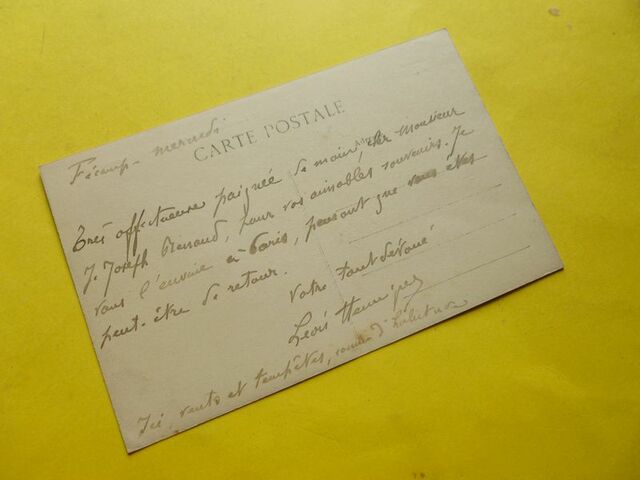 Fécamp - mercredi
CARTE POSTALE
Très affectueuse poignée de main, cher Monsieur
J. Joseph Renaud, pour vos aimables souvenirs. Je
vous l'envoie à Paris, pensant que vous êtes
peut-être de retour.
Votre tout dévoué
Léon Hennique
Ici, vents et tempêtes, comme d'habitude